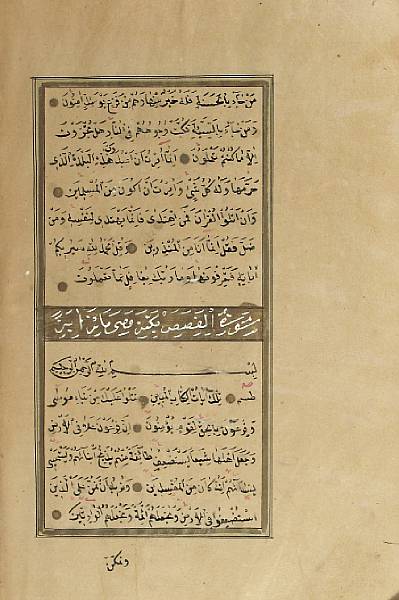 من جاء بالحسنة فله خير منها وهم من فزع يومئذ امنون
ومن جاء بالسيئة فكبت وجوههم في النار هل تجزون
الا ما كنتم تعملون انما امرت ان اعبد رب هذه البلدة الذى
حرمها وله كل شئ وامرت ان اكون من المسلمين
وان اتلوا القران فمن اهتدى فانما يهتدى لنفسه ومن
ضل فقل انما انا من المنذرين وقل الحمد لله سيريكم
اياته فتعرفونها وما ربك بغافل عما تعملون
سورة القصص مكية وهي
بسم الله الرحمن الرحيم
طسم تلك ايات الكتاب المبين نتلوا عليك من نباء موسى
وفرعون بالحق لقوم يؤمنون ان فرعون علا في الارض
وجعل اهلها شيعا يستضعف طائفة منهم يذبح ابنائهم ويستحيى
نسائهم انه كان من المفسدين ونريد ان نمن على الذين
استضعفوا في الارض ونجعلهم ائمة ونجعلهم الوارثين
ونمكن